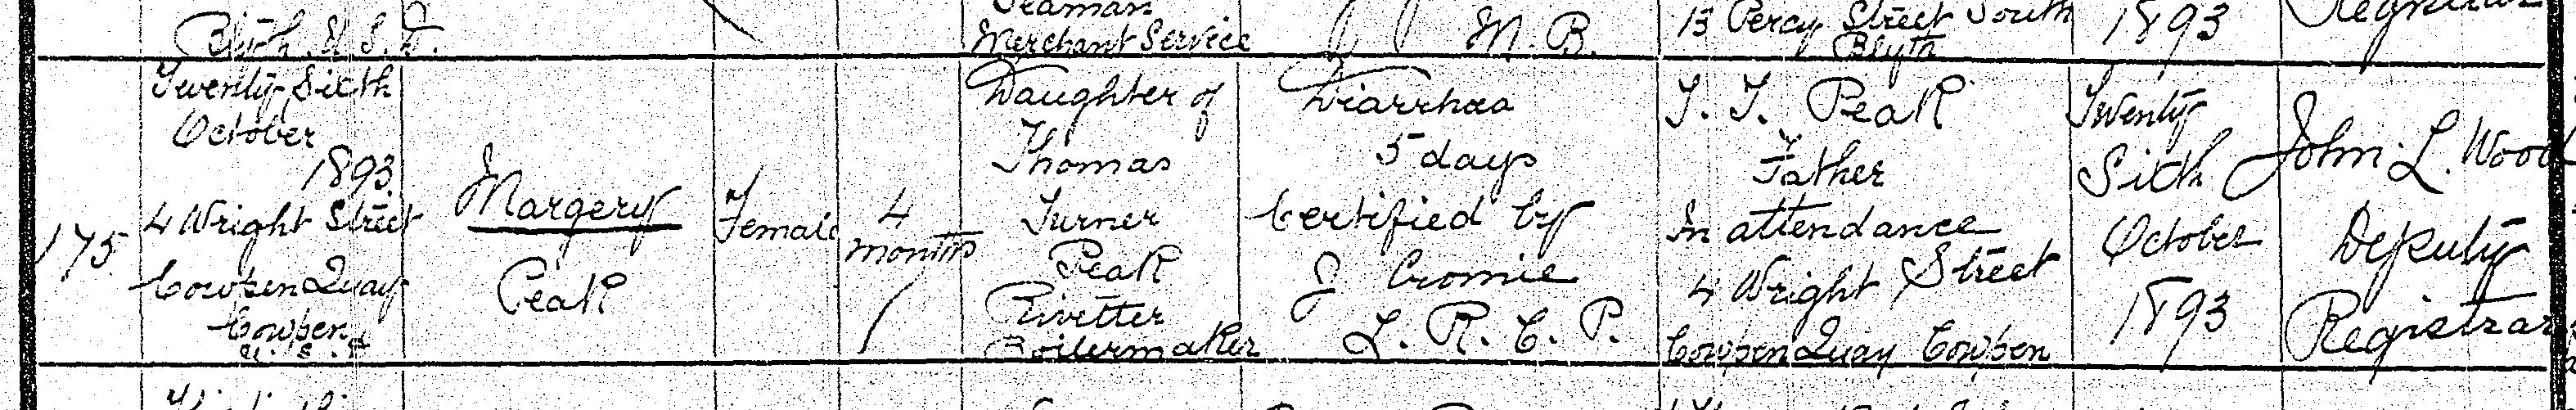 Blyth U.S.D.
Seaman
Merchant Service
M.B.
13 Percy Street South
Blyth
1893
Registrar
175
Twenty Sixth
October
1893
4 Wright Street
Cowpen Quay
Cowpen
U.S.D.
Margery
Peak
Female
4
months
Daughter of
Thomas
Turner
Peak
Rivetter
Boilermaker
Diarrhœa
5 days
Certified by
J Cromie
L.R.C.P.
T. T. Peak
Father
In attendance
4 Wright Street
Cowpen Quay Cowpen
Twenty
Sixth
October
1893
John L. Wood
Deputy
Registrar